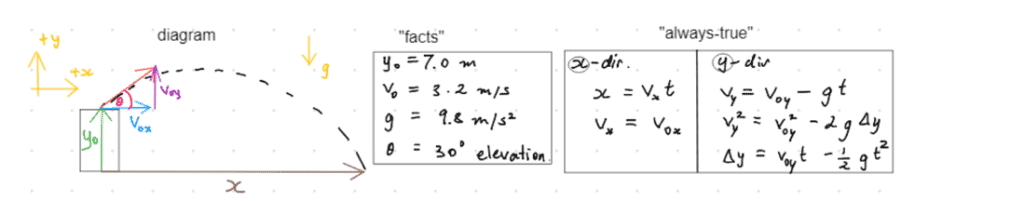 diagram
+y
+x
g
θ
Voy
Vox
yo
x
"facts"
yo = 7.0 m
Vo = 3.2 m/s
g = 9.8 m/s²
θ = 30° elevation
"always-true"
x-dir.
x = Vx t
Vx = Vox
y-dir
Vy = Voy - gt
Vy² = Voy² - 2g Δy
Δy = Voy t - 1/2 g t²